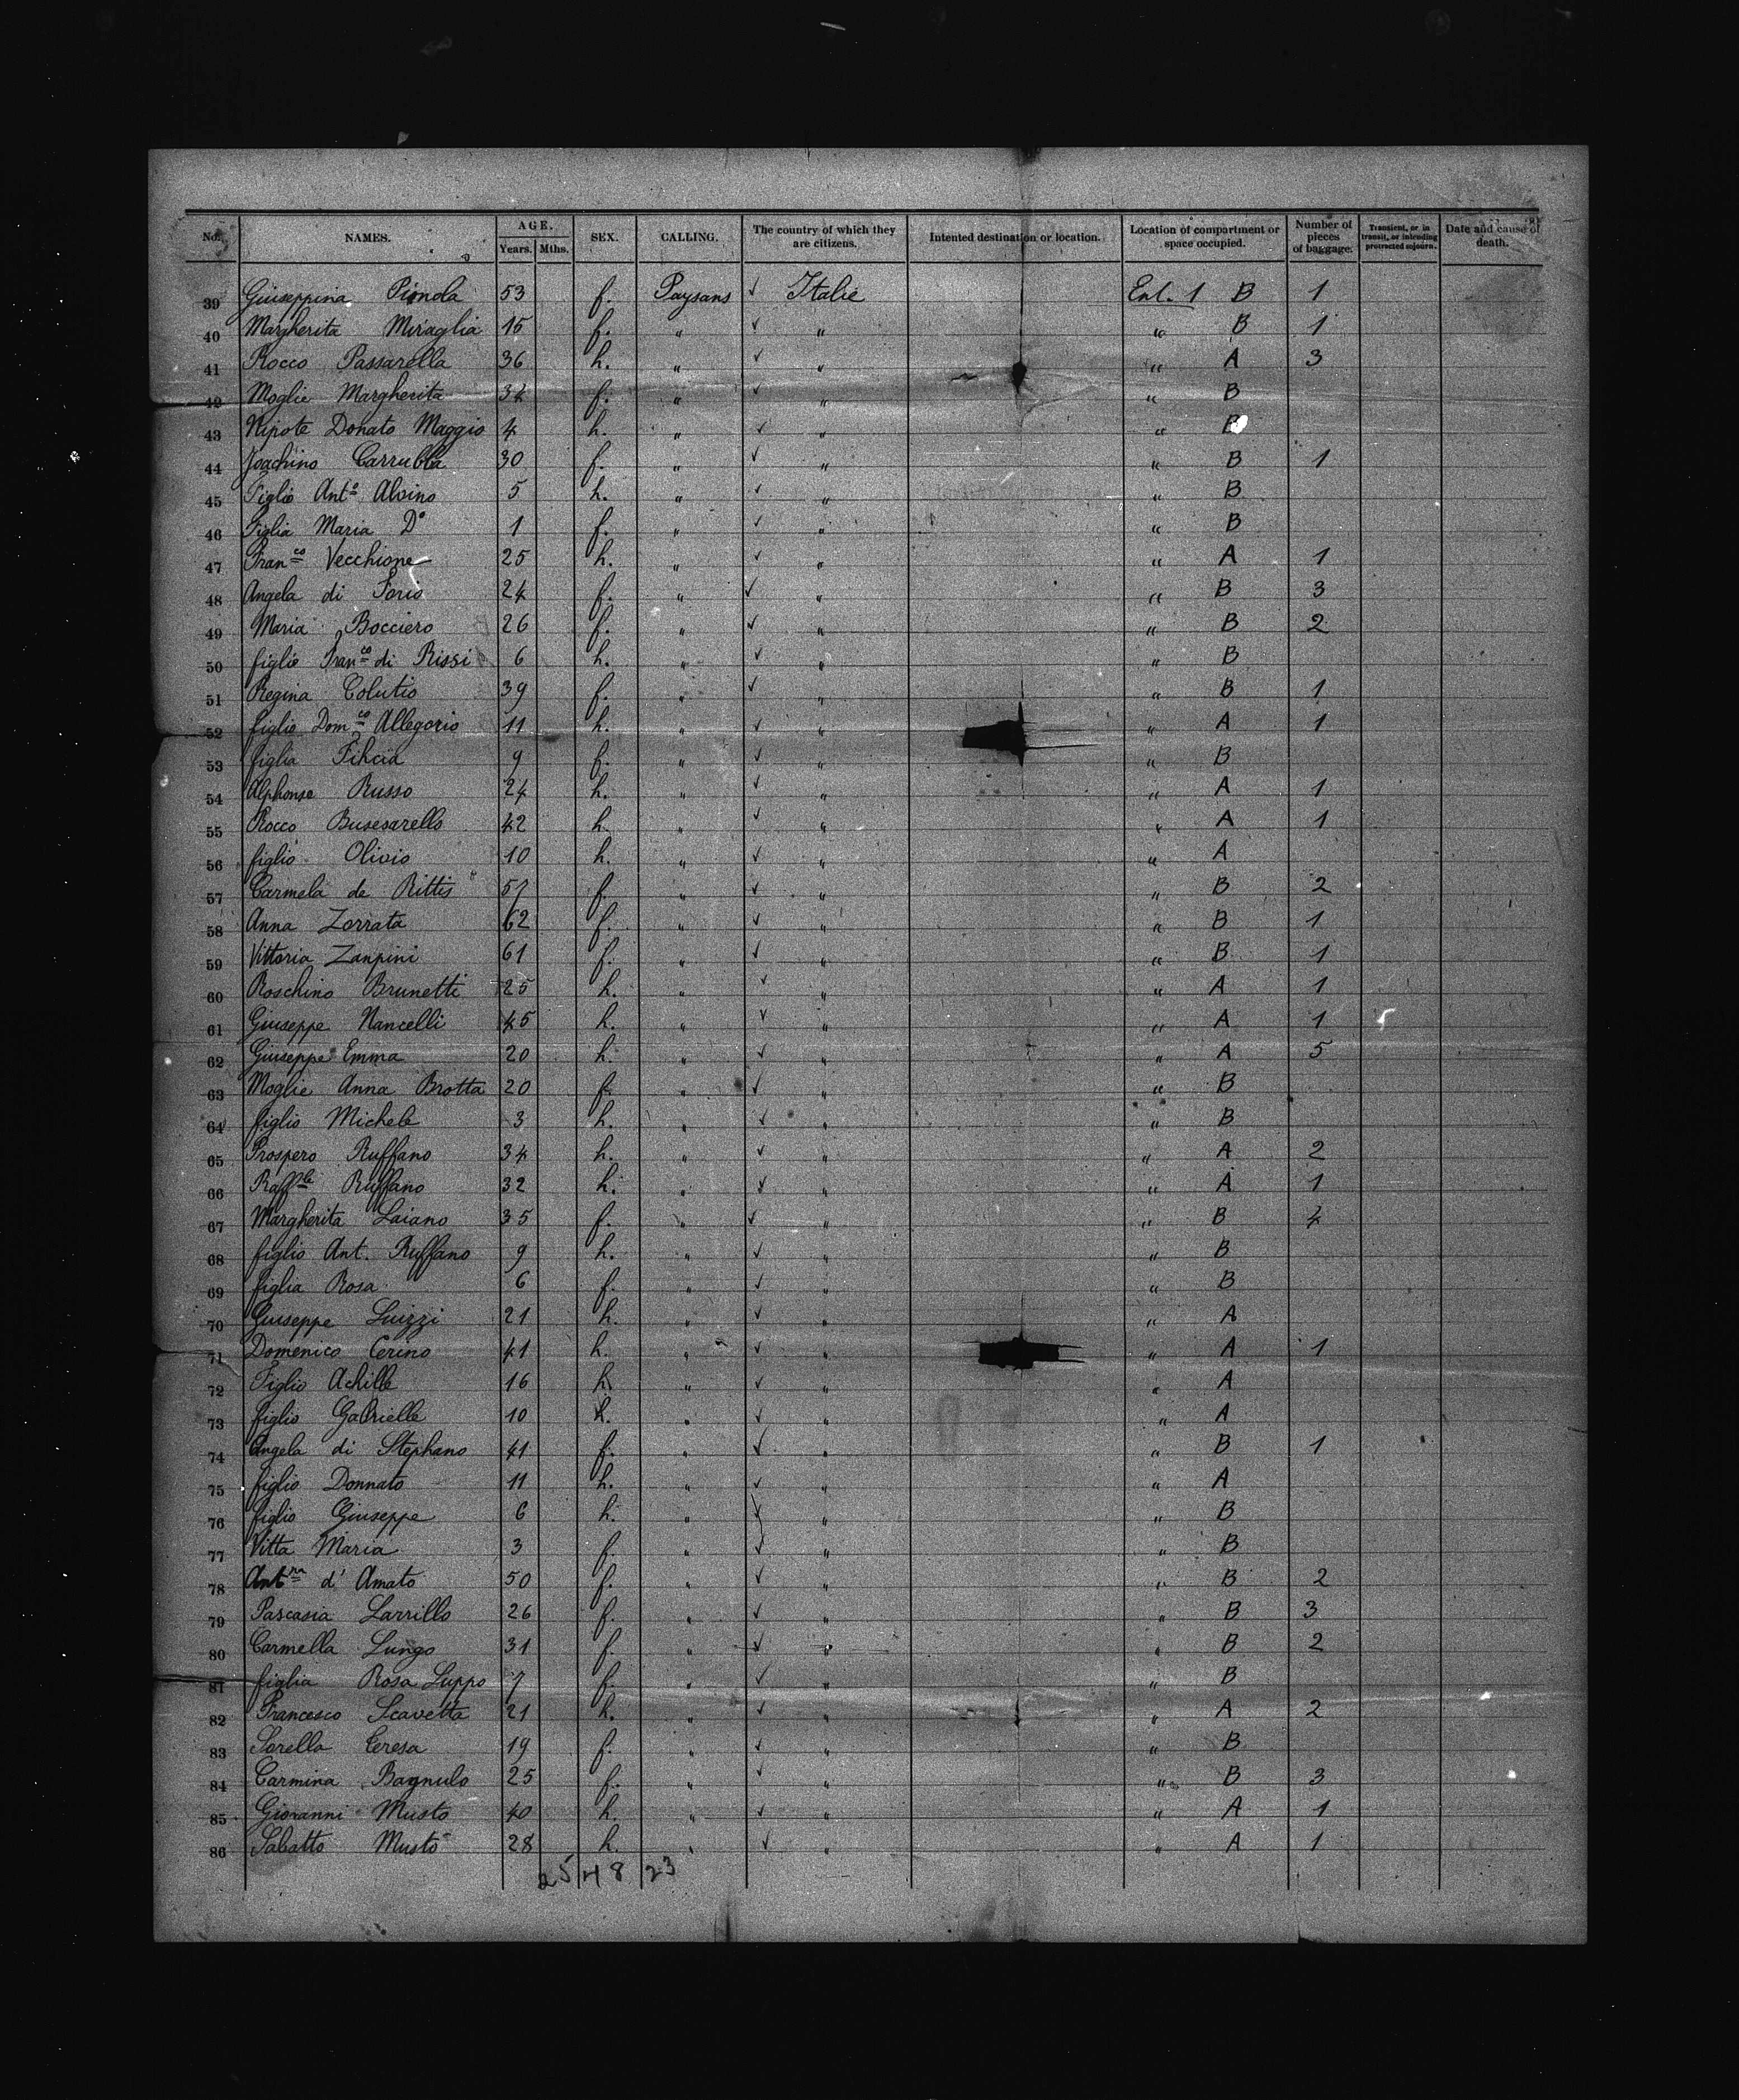 No. NAMES. AGE. Years. Mths. SEX. CALLING. The country of which they are citizens. Intented destination or location. Location of compartment or space occupied. Number of pieces of baggage. Transient, or in transit, or intending protracted sojourn. Date and cause of death.
39 Giuseppina Pionola 53 f. Paysans ✓ Italie Ent. 1 B 1
40 Margherita Miraglia 15 f. " ✓ " " B 1
41 Rocco Passarella 36 h. " ✓ " " A 3
42 Moglie Margherita 34 f. " ✓ " " B
43 Nipote Donato Maggio 4 h. " ✓ " " B
44 Joachino Carrubba 30 f. " ✓ " " B 1
45 Figlio Antº Alvino 5 h. " ✓ " " B
46 Figlia Maria Dº 1 f. " ✓ " " B
47 Franco Vecchione 25 h. " ✓ " " A 1
48 Angela di Iorio 24 f. " ✓ " " B 3
49 Maria Bocciero 26 f. " ✓ " " B 2
50 figlio Franco di Rissi 6 h. " ✓ " " B
51 Regina Colutio 39 f. " ✓ " " B 1
52 figlio Domco Allegorio 11 h. " ✓ " " A 1
53 figlia Filicia 9 f. " ✓ " " B
54 Alphonse Russo 24 h. " ✓ " " A 1
55 Rocco Busesarello 42 h. " ✓ " " A 1
56 figlio Olivio 10 h. " ✓ " " A
57 Carmela de Rittis 57 f. " ✓ " " B 2
58 Anna Zorrata 62 f. " ✓ " " B 1
59 Vittoria Zanpini 61 f. " ✓ " " B 1
60 Roschino Brunetti 25 h. " ✓ " " A 1
61 Giuseppe Nancelli 45 h. " ✓ " " A 1
62 Giuseppe Emma 20 h. " ✓ " " A 5
63 Moglie Anna Brotta 20 f. " ✓ " " B
64 figlio Michele 3 h. " ✓ " " B
65 Prospero Ruffano 34 h. " ✓ " " A 2
66 Raffle Ruffano 32 h. " ✓ " " A 1
67 Margherita Laiano 35 f. " ✓ " " B 4
68 figlio Ant. Ruffano 9 h. " ✓ " " B
69 figlia Rosa 6 f. " ✓ " " B
70 Giuseppe Luizzi 21 h. " ✓ " " A
71 Domenico Cerino 41 h. " ✓ " " A 1
72 Figlio Achille 16 h. " ✓ " " A
73 figlio Gabrielle 10 h. " ✓ " " A
74 Angela di Stephano 41 f. " ✓ " " B 1
75 figlio Donnato 11 h. " ✓ " " A
76 figlio Giuseppe 6 h. " ✓ " " B
77 Vitta Maria 3 f. " ✓ " " B
78 Antna d'Amato 50 f. " ✓ " " B 2
79 Pascasia Larrillo 26 f. " ✓ " " B 3
80 Carmella Lungo 31 f. " ✓ " " B 2
81 figlia Rosa Luppo 7 f. " ✓ " " B
82 Francesco Scavetta 21 h. " ✓ " " A 2
83 Sorella Teresa 19 f. " ✓ " " B
84 Carmina Bagnulo 25 f. " ✓ " " B 3
85 Giovanni Musto 40 h. " ✓ " " A 1
86 Sabatto Musto 28 h. " ✓ " " A 1
25 48 23